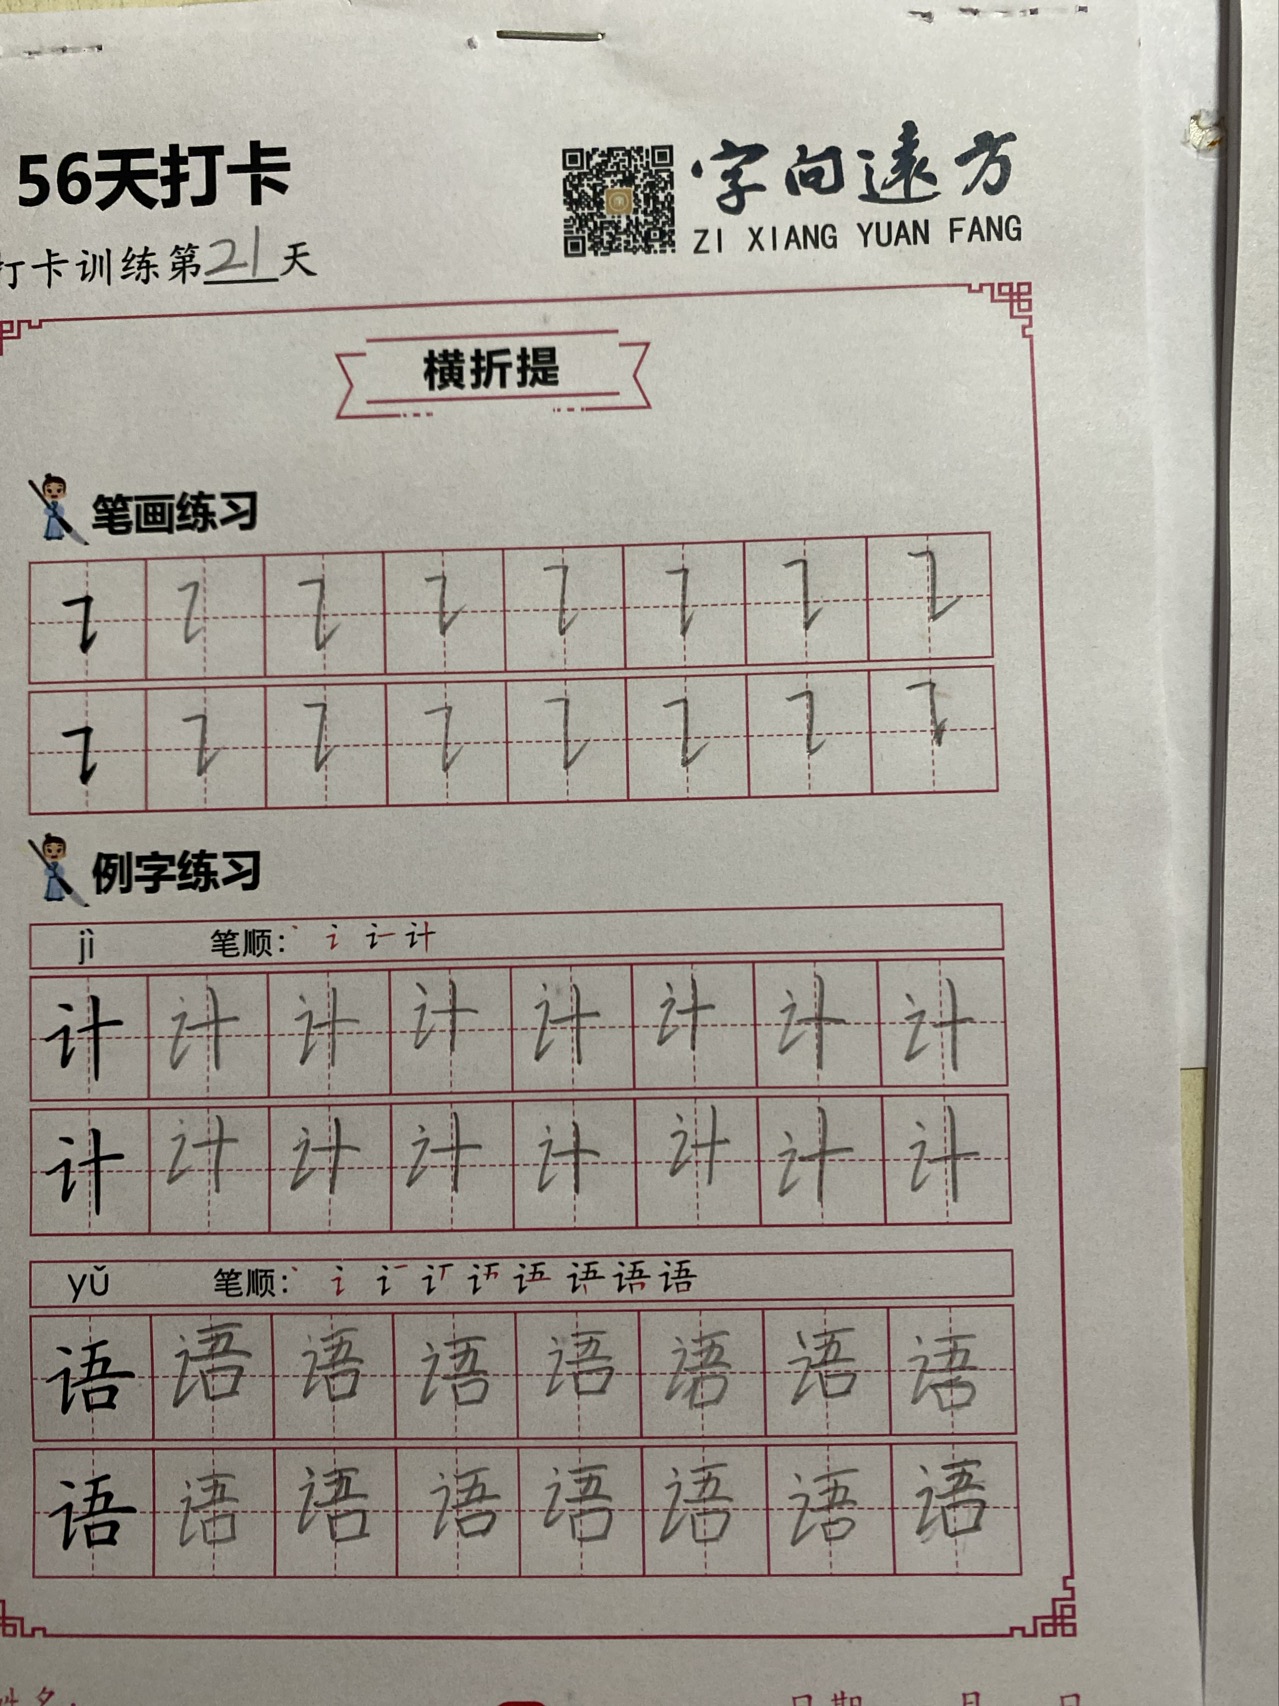 56天打卡
字向遠方
ZI XIANG YUAN FANG
打卡训练第21天
横折提
笔画练习
例字练习
jì 笔顺:
计 计 计 计 计 计 计 计
计 计 计 计 计 计 计 计
yǔ 笔顺:
语 语 语 语 语 语 语 语
语 语 语 语 语 语 语 语
姓名:
日期 月 日